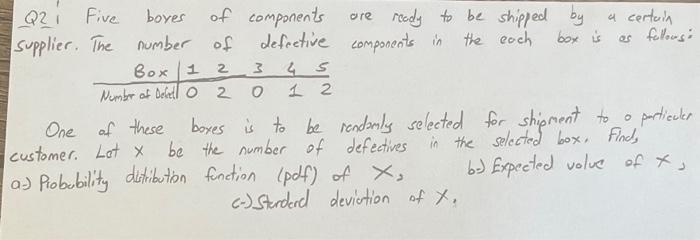 Q2: Five boxes of components are ready to be shipped by a certain
supplier. The number of defective components in the each box is as follows:
Box 1 2 3 4 5
Number of Defect 0 2 0 1 2
One of these boxes is to be randomly selected for shipment to a particular
customer. Let X be the number of defectives in the selected box. Find,
a-) Probability distribution function (pdf) of X, b-) Expected value of X,
c-) Standard deviation of X.